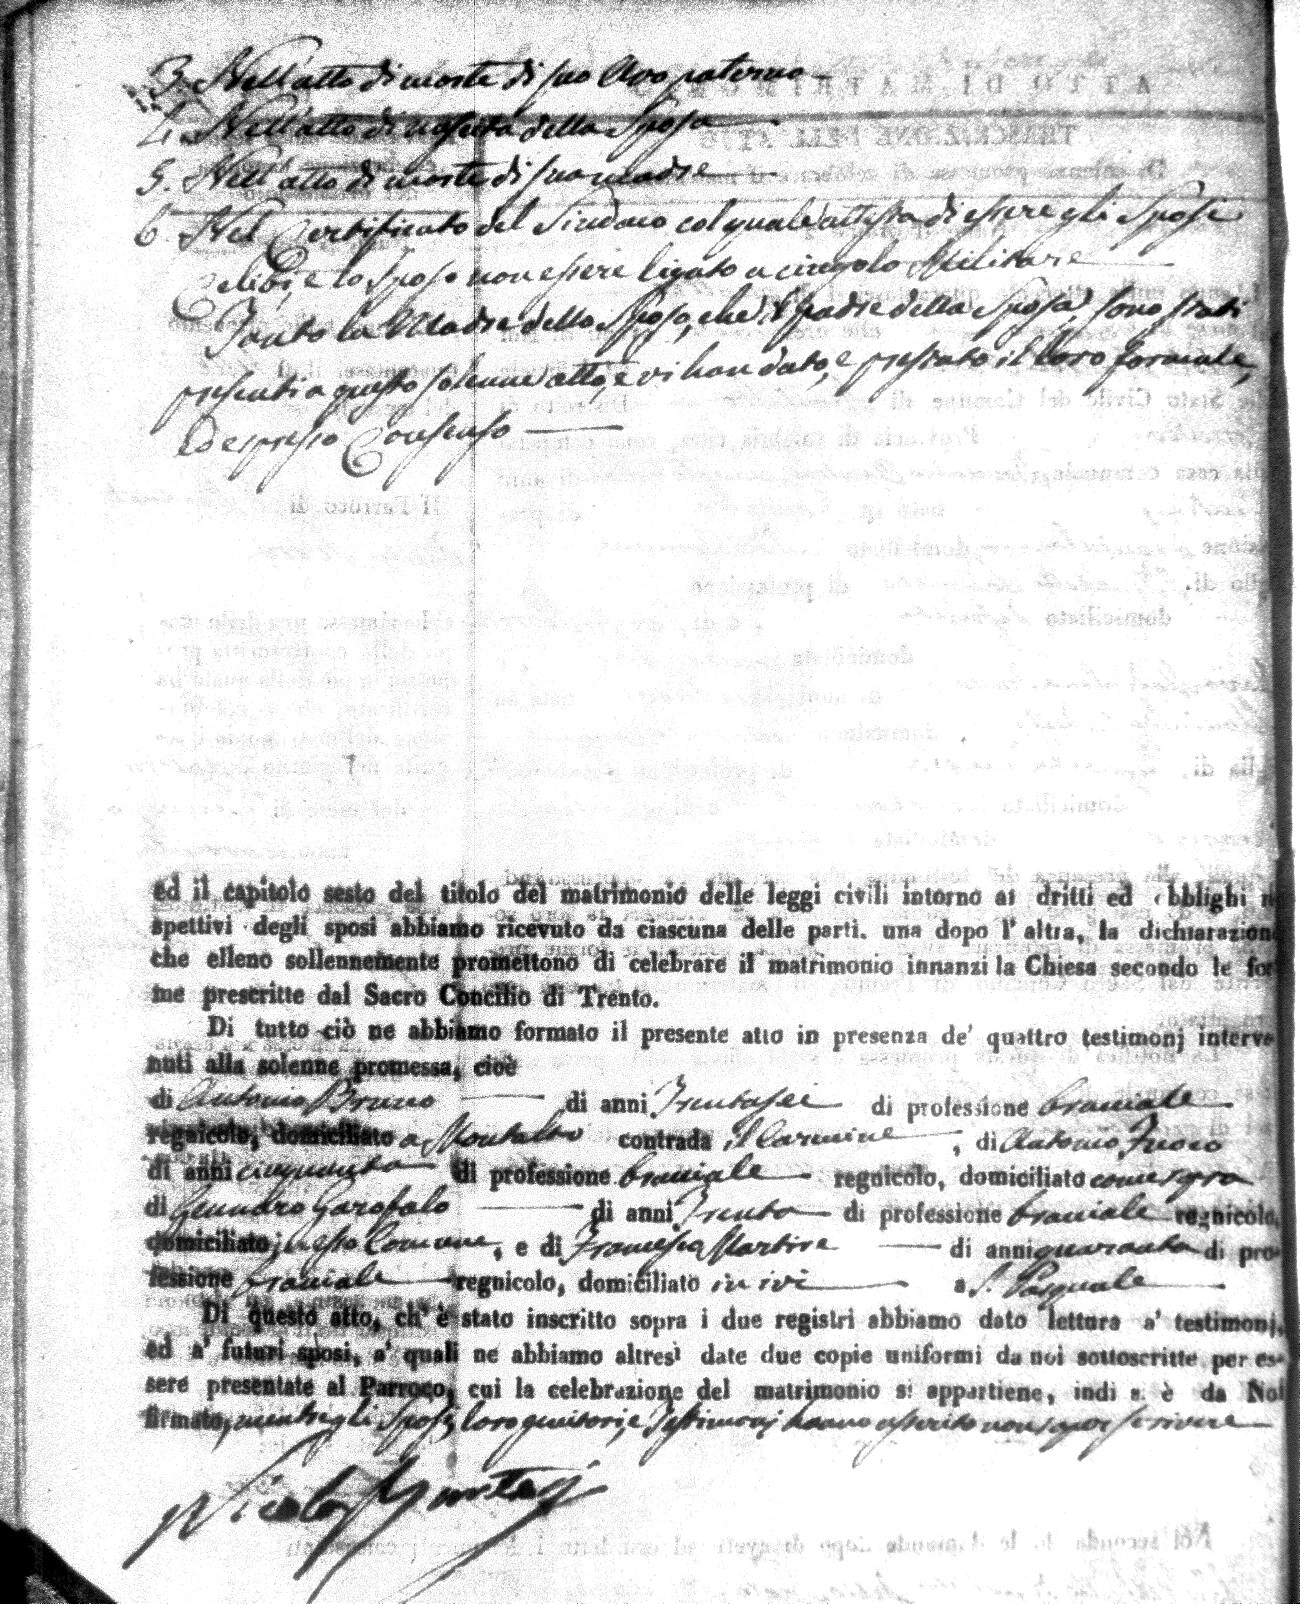 3. Nell'atto di morte di suo Avo paterno
4. Nell'atto di nascita della Sposa
5. Nell'atto di morte di sua madre
6. Nel Certificato del Sindaco col quale attesta di essere gli Sposi
Celibi, e lo Sposo non essere ligato a cingolo Militare
Tanto la Madre dello Sposo, che il padre della Sposa, sono stati
presenti a questo solenne atto, e vi han dato, e prestato il loro formale,
ed espresso Consenso
ed il capitolo sesto del titolo del matrimonio delle leggi civili intorno ai dritti ed obblighi ri
spettivi degli sposi abbiamo ricevuto da ciascuna delle parti. una dopo l'altra, la dichiarazione
che elleno sollennemente promettono di celebrare il matrimonio innanzi la Chiesa secondo le for
me prescritte dal Sacro Concilio di Trento.
Di tutto ciò ne abbiamo formato il presente atto in presenza de' quattro testimonj interve
nuti alla solenne promessa, cioè
di Antonio Bruno di anni Trentasei di professione braciale
regnicolo, domiciliato a Montalto contrada il Carmine, di Antonio Fuoco
di anni cinquanta di professione braciale regnicolo, domiciliato come sopra
di Gennaro Garofalo di anni Trenta di professione braciale regnicolo,
domiciliato in esso Comune, e di Francesco Martire di anni quaranta di pro-
fessione braciale regnicolo, domiciliato in ivi a S. Pasquale
Di questo atto, ch' è stato inscritto sopra i due registri abbiamo dato lettura a' testimonj,
ed a' futuri sposi, a' quali ne abbiamo altresì date due copie uniformi da noi sottoscritte per es-
sere presentate al Parroco, cui la celebrazione del matrimonio si appartiene, indi s. è da Noi
firmato, mentre gli Sposi, loro genitori, e Testimonj hanno asserito non saper scrivere
Nicola